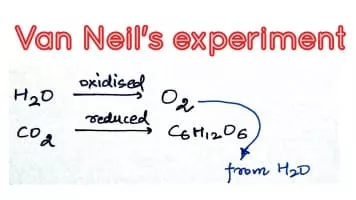 Van Neil's experiment
H₂O oxidised → O₂
CO₂ reduced → C₆H₁₂O₆
from H₂O